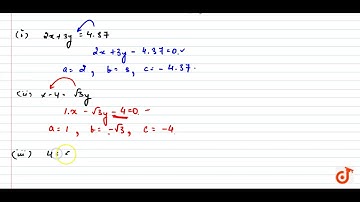 (i) 2x+3y = 4.37
2x+3y - 4.37=0.
a= 2, b= 3, c= - 4.37.
(ii) x-4 = √3y
1.x - √3y - 4=0.
a= 1, b= -√3, c= -4
(iii) 4 =
doubtnut